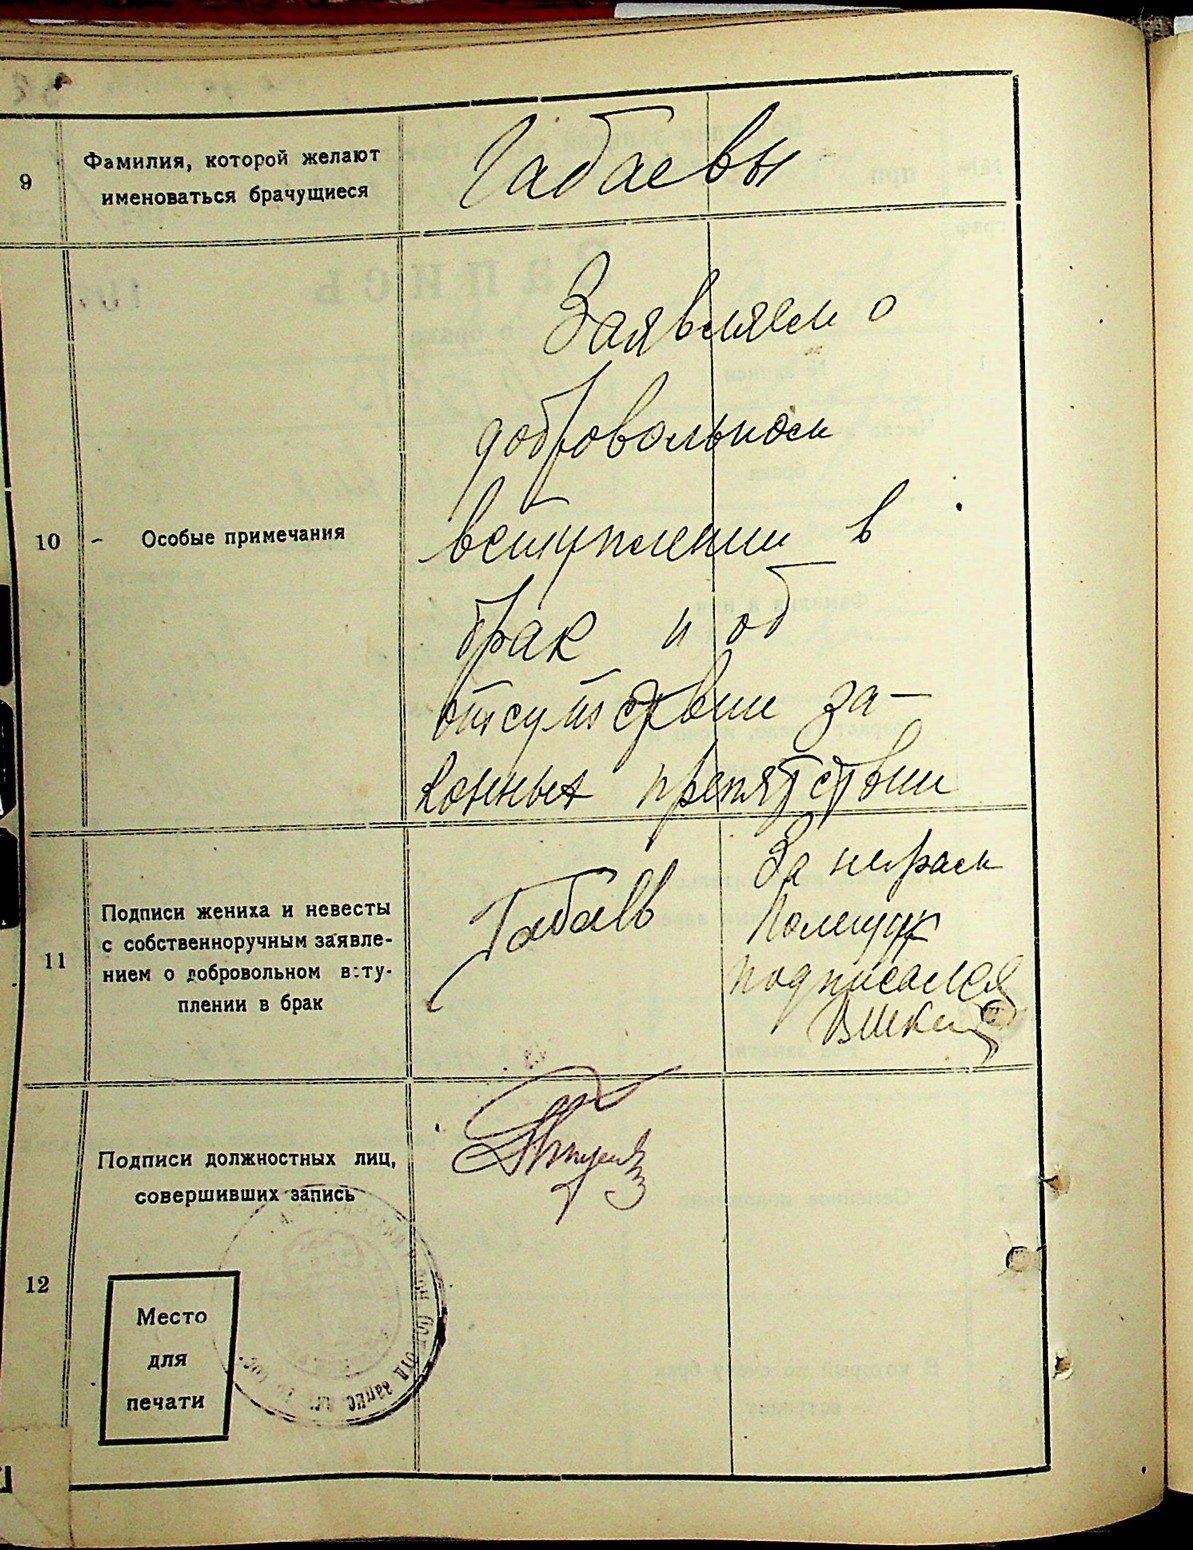 9
Фамилия, которой желают
именоваться брачущиеся
Габаевы
10
Особые примечания
Заявляем о
добровольном
вступлении в
брак и об
отсутствии за-
конных препятствии
11
Подписи жениха и невесты
с собственноручным заявле-
нием о добровольном всту-
плении в брак
Габаев
За неграм
подписался
12
Подписи должностных лиц,
совершивших запись
Место
для
печати